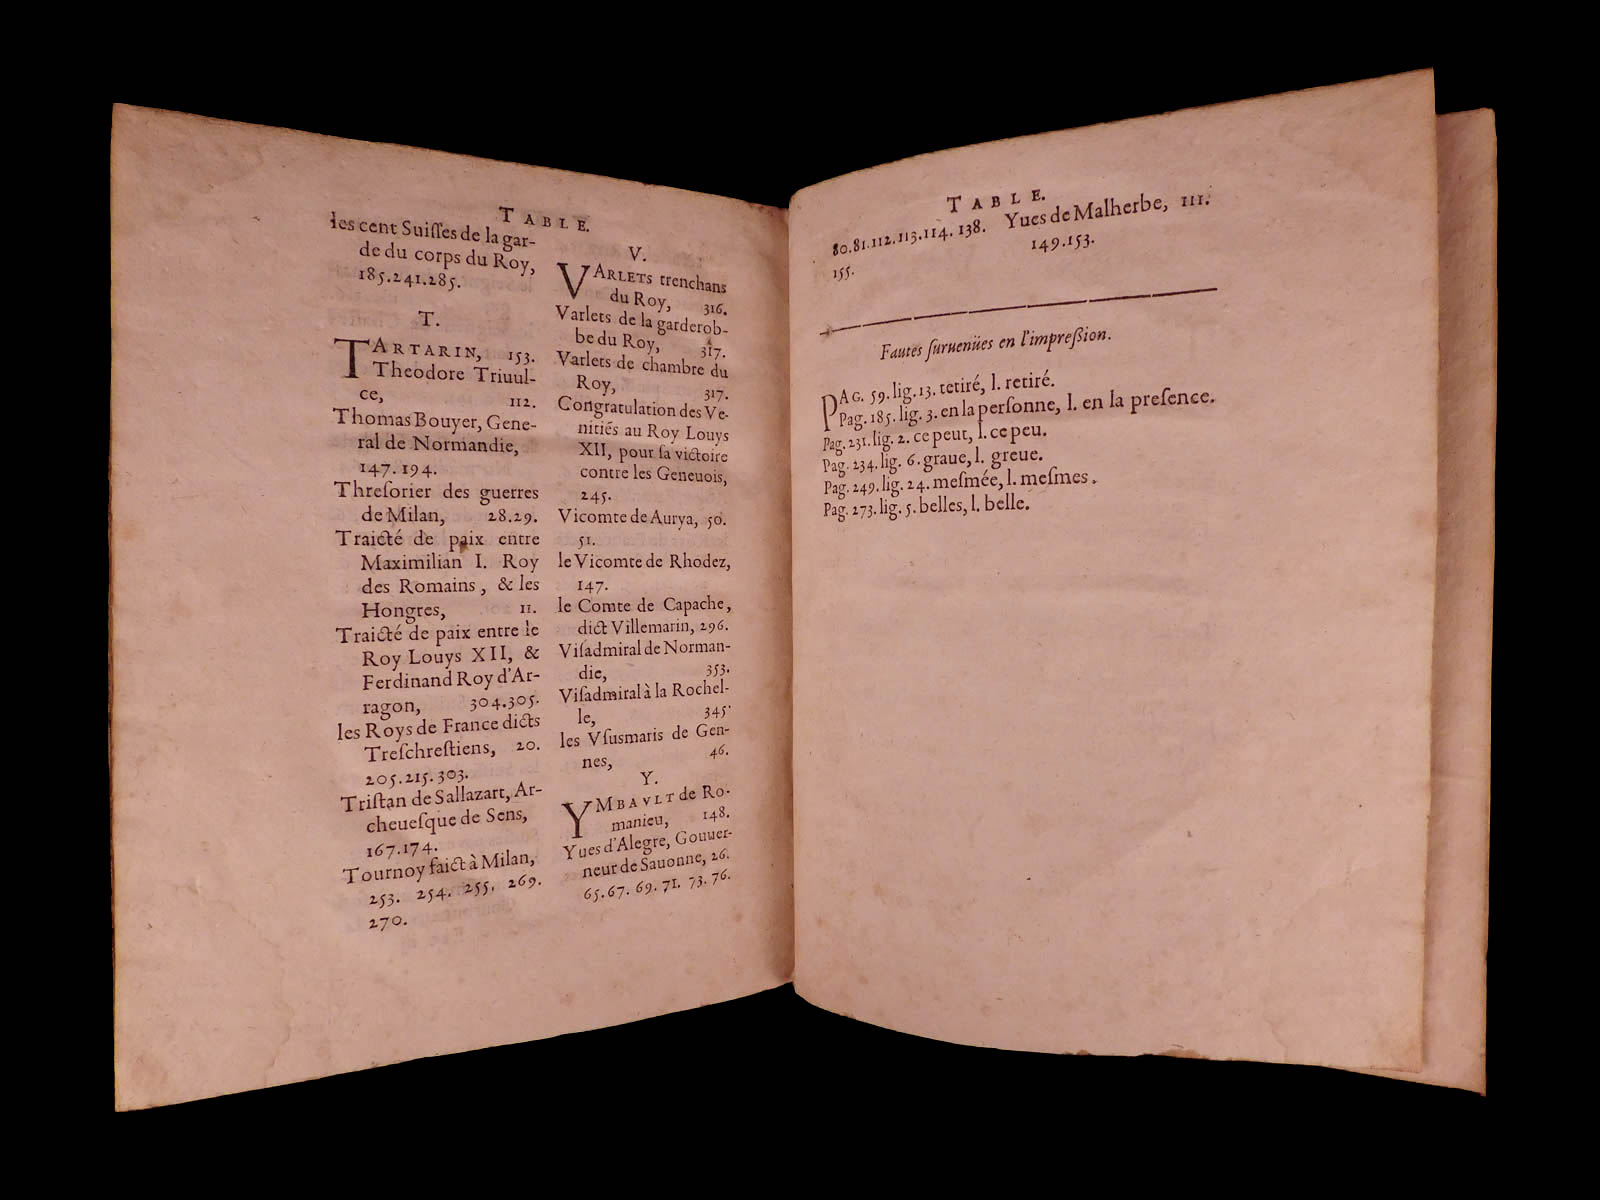 TABLE.
les cent Suiſſes de la gar-
de du corps du Roy,
185.241.285.
T.
TARTARIN, 153.
Theodore Triuul-
ce, 112.
Thomas Bouyer, Gene-
ral de Normandie,
147. 194.
Threſorier des guerres
de Milan, 28.29.
Traicté de paix entre
Maximilian I. Roy
des Romains, & les
Hongres, 11.
Traicté de paix entre le
Roy Louys XII, &
Ferdinand Roy d'Ar-
ragon, 304.305.
les Roys de France dicts
Treſchreſtiens, 20.
205.215.303.
Triſtan de Sallazart, Ar-
cheueſque de Sens,
167.174.
Tournoy faict à Milan,
253. 254. 255. 269.
270.
V.
VARLETS trenchans
du Roy, 316.
Varlets de la garderob-
be du Roy, 317.
Varlets de chambre du
Roy, 317.
Congratulation des Ve-
nitiés au Roy Louys
XII, pour ſa victoire
contre les Geneuois,
245.
Vicomte de Aurya, 50.
51.
le Vicomte de Rhodez,
147.
le Comte de Capache,
dict Villemarin, 296.
Viſadmiral de Norman-
die, 353.
Viſadmiral à la Rochel-
le, 345.
les Vſusmaris de Gen-
nes, 46.
Y.
YMBAVLT de Ro-
manieu, 148.
Yues d'Alegre, Gouuer-
neur de Sauonne, 26.
65.67. 69. 71. 73. 76.
TABLE.
80.81.112.113.114. 138.
155.
Yues de Malherbe, 111.
149.153.
Fautes ſuruenües en l'impreſſion.
PAG. 59. lig. 13. tetiré, l. retiré.
Pag. 185. lig. 3. en la perſonne, l. en la preſence.
Pag. 231. lig. 2. ce peut, l. ce peu.
Pag. 234. lig. 6. graue, l. greue.
Pag. 249. lig. 24. meſmée, l. meſmes.
Pag. 273. lig. 5. belles, l. belle.